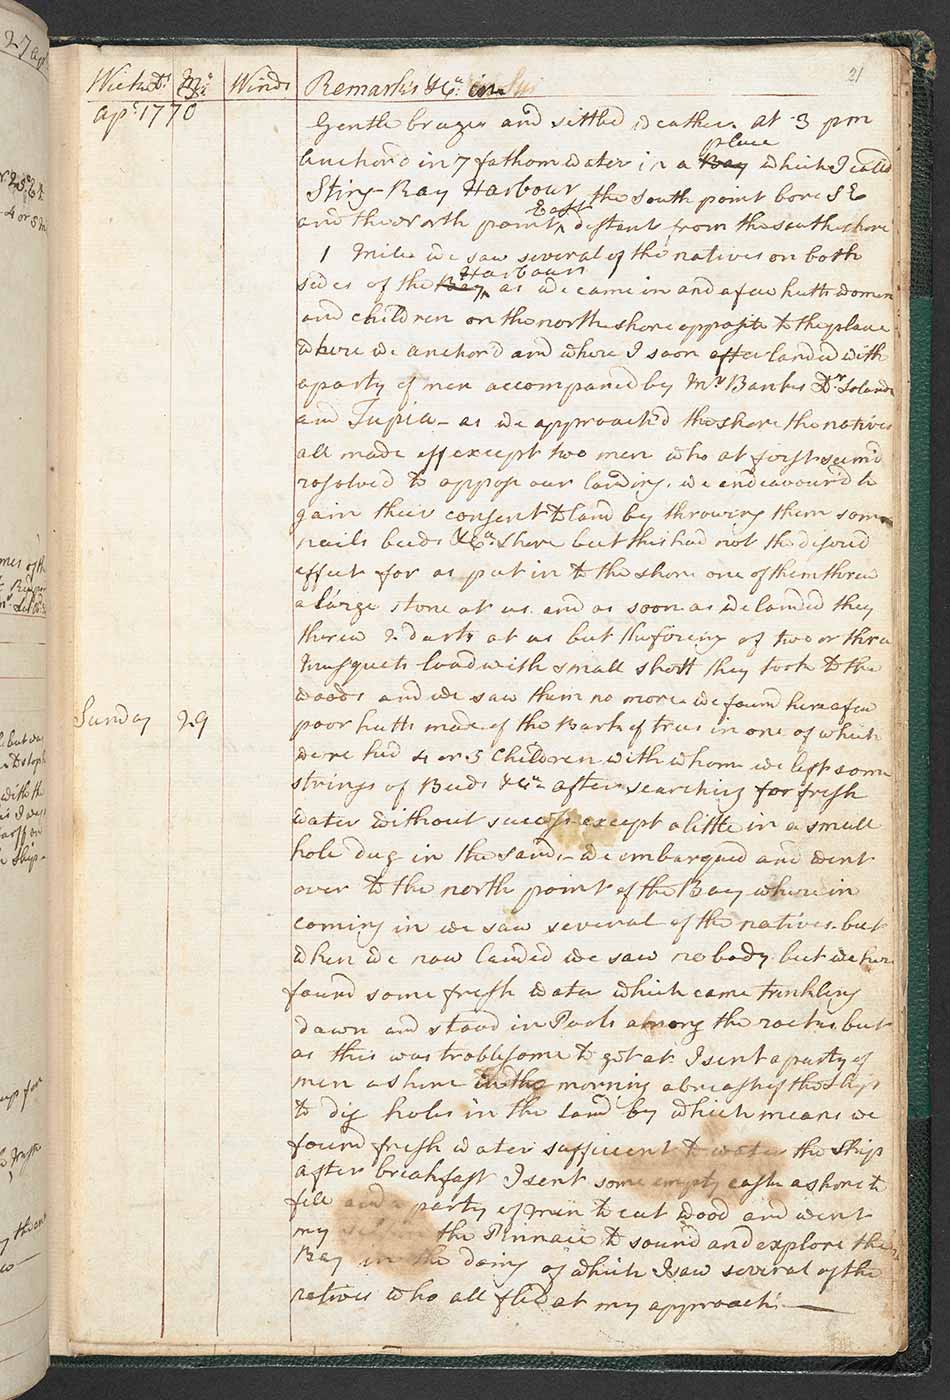 21
Week Ds Mo Winds Remarks &Ca in
apl 1770
Gentle brezes and settled weather. at 3 pm
anchor'd in 7 fathom water in a Bay place which I call'd
Sting-Ray Harbour the south point bore SE
and the north point East distant from the south shore
1 Mile. we saw several of the natives on both
sides of the Bay Harbour as we came in and a few hutts women
and children on the north shore opposite to the place
where we anchor'd and where I soon after landed with
a party of men accompaned by Mr Banks Dr Solander
and Tupia - as we approach'd the shore the natives
all made off except two men who at first seem'd
resolved to oppose our landing. we endeavour'd to
gain their consent to land by throwing them some
nails beeds &Ca. shore but this had not the desired
effect for as put in to the shore one of them threw
a large stone at us and as soon as we landed they
threw 2 darts at us but the fireing of two or three
musquets load with small shott they took to the
woods and we saw them no more. we found here a few
Sunday 29 poor hutts made of the Bark of trees in one of which
were hid 4 or 5 Children with whom we left some
strings of Beeds &Ca after searching for fresh
water without success except a little in a small
hole dug in the sand - we embarqued and went
over to the north point of the Bay where in
coming in we saw several of the natives. but
when we now landed we saw no body but we here
found some fresh water which came trinkling
down and stood in Pools among the rocks. but
as this was troblesome to get at I sent a party of
men ashore in the morning abreast of the ship
to dig holes in the sand by which means we
found fresh water sufficient to water the ship
after breakfast I sent some empty casks ashore to
fill and a party of men to cut wood and went
my self in the Pinnace to sound and explore the
Bay in the doing of which I saw several of the
natives who all fled at my approach. —
27 ap
4 or 5 m
mes of the
but was
with the
ship -